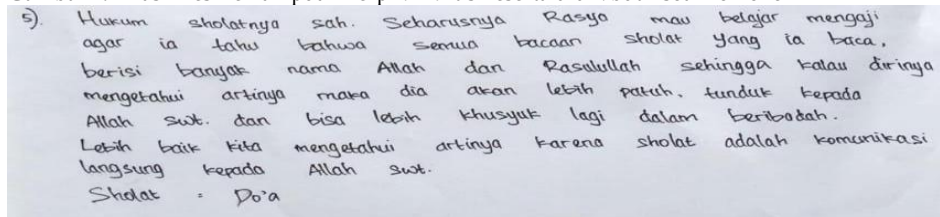 5). Hukum sholatnya sah. Seharusnya Rasya mau belajar mengaji
agar ia tahu bahwa semua bacaan sholat yang ia baca,
berisi banyak nama Allah dan Rasalullah sehingga kalau dirinya
mengetahui artinya maka dia akan lebih patuh, tunduk kepada
Allah swt. dan bisa lebih khusyuk lagi dalam beribadah.
Lebih baik kita mengetahui artinya karena sholat adalah komunikasi
langsung kepada Allah swt.
Sholat = Do'a